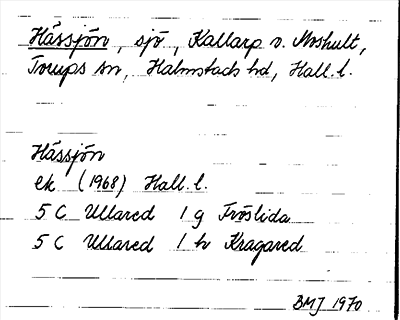 Hässjön, sjö, Kallarp v. Moshult,
Torups sn, Halmstads hd, Hall. l.
Hässjön
ek (1968) Hall. l.
5 C Ullared 1 g Fröslida
5 C Ullared 1 h Kragared
BMJ 1970